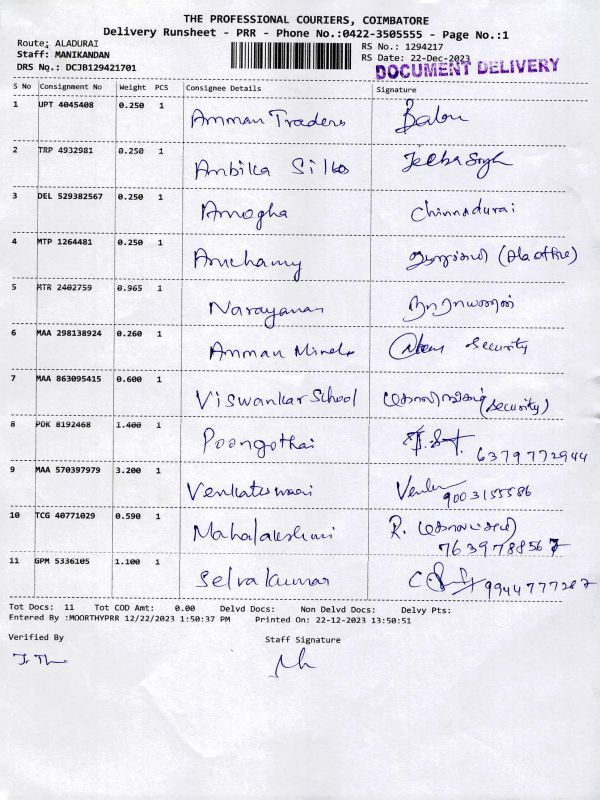 THE PROFESSIONAL COURIERS, COIMBATORE
Delivery Runsheet - PRR - Phone No.:0422-3505555 - Page No.:1
Route: ALADURAI RS No.: 1294217
Staff: MANIKANDAN RS Date: 22-Dec-2023
DRS No.: DCJB129421701 DOCUMENT DELIVERY
S No Consignment No Weight PCS Consignee Details Signature
1 UPT 4045408 0.250 1 Amman Traders Babu
2 TRP 4932981 0.250 1 Ambika Silks
3 DEL 529382567 0.250 1 Amogha Chinnadurai
4 MTP 1264481 0.250 1 Amchamy
5 MTR 2402759 0.965 1 Narayanan நாராயணன்
6 MAA 298138924 0.260 1 Amman Minels Security
7 MAA 863095415 0.600 1 Viswankar School (Security)
8 PDK 8192468 1.400 1 Poongothai 6379772944
9 MAA 570397979 3.200 1 Venkateswari 9003155586
10 TCG 40771029 0.590 1 Mahalakshmi R. 7639788567
11 GPM 5336105 1.100 1 Selvakumar 9944777287
Tot Docs: 11 Tot COD Amt: 0.00 Delvd Docs: Non Delvd Docs: Delvy Pts:
Entered By :MOORTHYPRR 12/22/2023 1:50:37 PM Printed On: 22-12-2023 13:50:51
Verified By Staff Signature